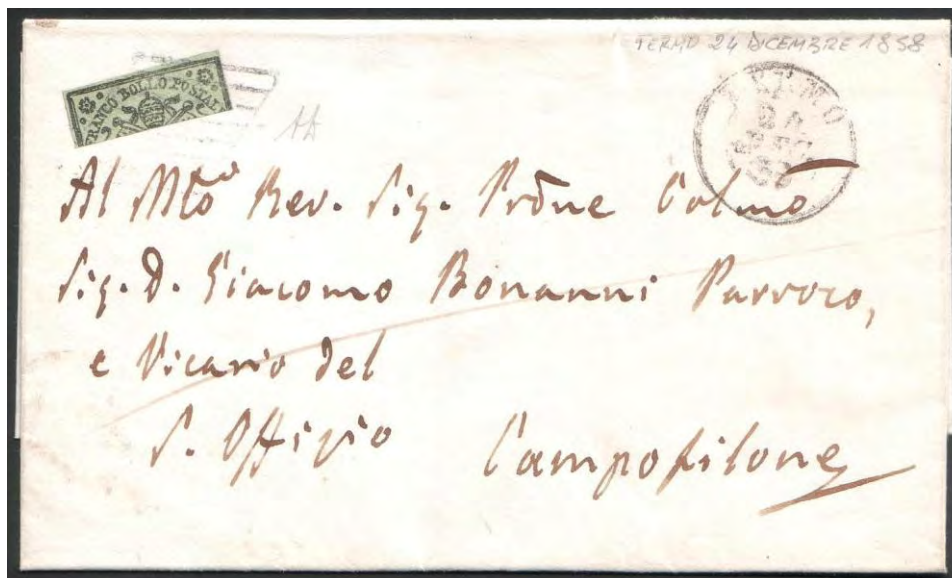 FERMO 24 DICEMBRE 1858
FRANCO BOLLO POSTAL
FERMO
24
AA
Al Mto Rev. Sig. Prõne Colmo
Sig. D. Giacomo Bonanni Parroco,
e Vicario del
S. Offizio
Campofilone